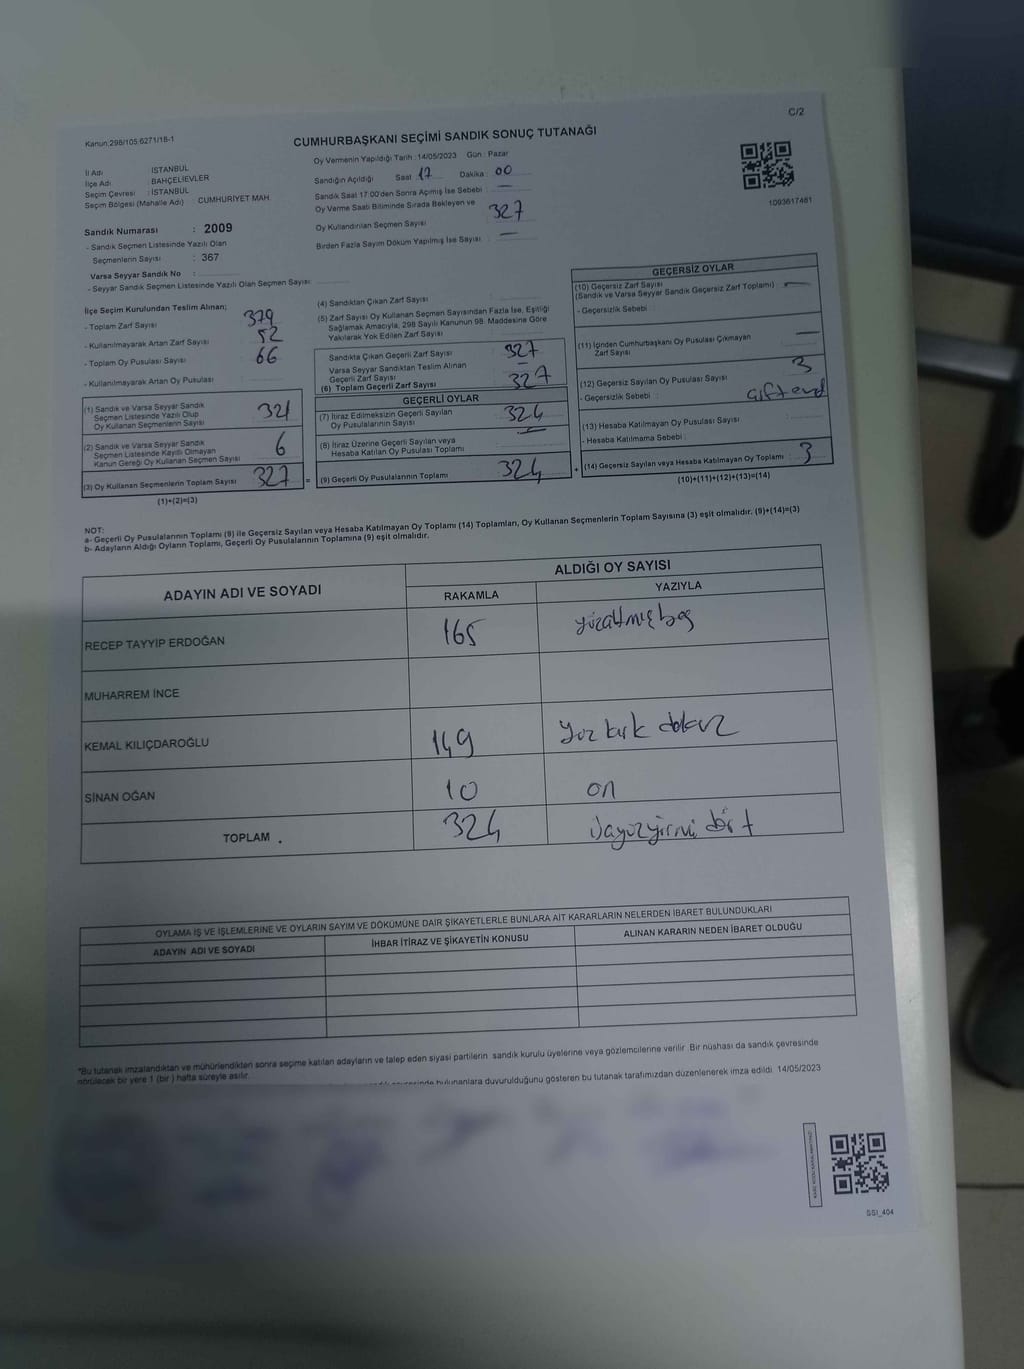 C/2
Kanun:298/105;6271/18-1
CUMHURBAŞKANI SEÇİMİ SANDIK SONUÇ TUTANAĞI
İl Adı : İSTANBUL
İlçe Adı : BAHÇELİEVLER
Seçim Çevresi : İSTANBUL
Seçim Bölgesi (Mahalle Adı) : CUMHURİYET MAH.
Oy Vermenin Yapıldığı Tarih : 14/05/2023 Gün : Pazar
Sandığın Açıldığı Saat : 17 Dakika : 00
Sandık Saat 17:00'den Sonra Açılmış İse Sebebi : —
Oy Verme Saati Bitiminde Sırada Bekleyen ve
Oy Kullandırılan Seçmen Sayısı : 327
Birden Fazla Sayım Döküm Yapılmış İse Sayısı : —
1093617461
Sandık Numarası : 2009
- Sandık Seçmen Listesinde Yazılı Olan
Seçmenlerin Sayısı : 367
Varsa Seyyar Sandık No :
- Seyyar Sandık Seçmen Listesinde Yazılı Olan Seçmen Sayısı:
İlçe Seçim Kurulundan Teslim Alınan;
- Toplam Zarf Sayısı : 379
- Kullanılmayarak Artan Zarf Sayısı : 52
- Toplam Oy Pusulası Sayısı : 66
- Kullanılmayarak Artan Oy Pusulası :
(1) Sandık ve Varsa Seyyar Sandık
Seçmen Listesinde Yazılı Olup
Oy Kullanan Seçmenlerin Sayısı : 321
(2) Sandık ve Varsa Seyyar Sandık
Seçmen Listesinde Kayıtlı Olmayan
Kanun Gereği Oy Kullanan Seçmen Sayısı : 6
(3) Oy Kullanan Seçmenlerin Toplam Sayısı : 327
(1)+(2)=(3)
(4) Sandıktan Çıkan Zarf Sayısı :
(5) Zarf Sayısı Oy Kullanan Seçmen Sayısından Fazla İse, Eşitliği
Sağlamak Amacıyla, 298 Sayılı Kanunun 98. Maddesine Göre
Yakılarak Yok Edilen Zarf Sayısı :
Sandıkta Çıkan Geçerli Zarf Sayısı : 327
Varsa Seyyar Sandıktan Teslim Alınan
Geçerli Zarf Sayısı : —
(6) Toplam Geçerli Zarf Sayısı : 327
GEÇERLİ OYLAR
(7) İtiraz Edilmeksizin Geçerli Sayılan
Oy Pusulasının Sayısı : 324
(8) İtiraz Üzerine Geçerli Sayılan veya
Hesaba Katılan Oy Pusulası Toplamı : —
= (9) Geçerli Oy Pusulalarının Toplamı : 324
GEÇERSİZ OYLAR
(10) Geçersiz Zarf Sayısı
(Sandık ve Varsa Seyyar Sandık Geçersiz Zarf Toplamı) : —
- Geçersizlik Sebebi :
(11) İçinden Cumhurbaşkanı Oy Pusulası Çıkmayan
Zarf Sayısı : —
(12) Geçersiz Sayılan Oy Pusulası Sayısı : 3
- Geçersizlik Sebebi :
(13) Hesaba Katılmayan Oy Pusulası Sayısı :
- Hesaba Katılmama Sebebi :
+ (14) Geçersiz Sayılan veya Hesaba Katılmayan Oy Toplamı : 3
(10)+(11)+(12)+(13)=(14)
NOT:
a- Geçerli Oy Pusulalarının Toplamı (9) ile Geçersiz Sayılan veya Hesaba Katılmayan Oy Toplamı (14) Toplamları, Oy Kullanan Seçmenlerin Toplam Sayısına (3) eşit olmalıdır. (9)+(14)=(3)
b- Adayların Aldığı Oyların Toplamı, Geçerli Oy Pusulalarının Toplamına (9) eşit olmalıdır.
ADAYIN ADI VE SOYADI ALDIĞI OY SAYISI
RAKAMLA YAZIYLA
RECEP TAYYİP ERDOĞAN 165 yüzaltmış beş
MUHARREM İNCE
KEMAL KILIÇDAROĞLU 149 Yüz kırk dokuz
SİNAN OĞAN 10 on
TOPLAM . 324 üçyüzyirmi dört
OYLAMA İŞ VE İŞLEMLERİNE VE OYLARIN SAYIM VE DÖKÜMÜNE DAİR ŞİKAYETLERLE BUNLARA AİT KARARLARIN NELERDEN İBARET BULUNDUKLARI
ADAYIN ADI VE SOYADI İHBAR İTİRAZ VE ŞİKAYETİN KONUSU ALINAN KARARIN NEDEN İBARET OLDUĞU
*Bu tutanak imzalandıktan ve mühürlendikten sonra seçime katılan adayların ve talep eden siyasi partilerin sandık kurulu üyelerine veya gözlemcilerine verilir. Bir nüshası da sandık çevresinde
görülecek bir yere 1 (bir) hafta süreyle asılır.
bulunanlara duyurulduğunu gösteren bu tutanak tarafımızdan düzenlenerek imza edildi. 14/05/2023
SSI_404